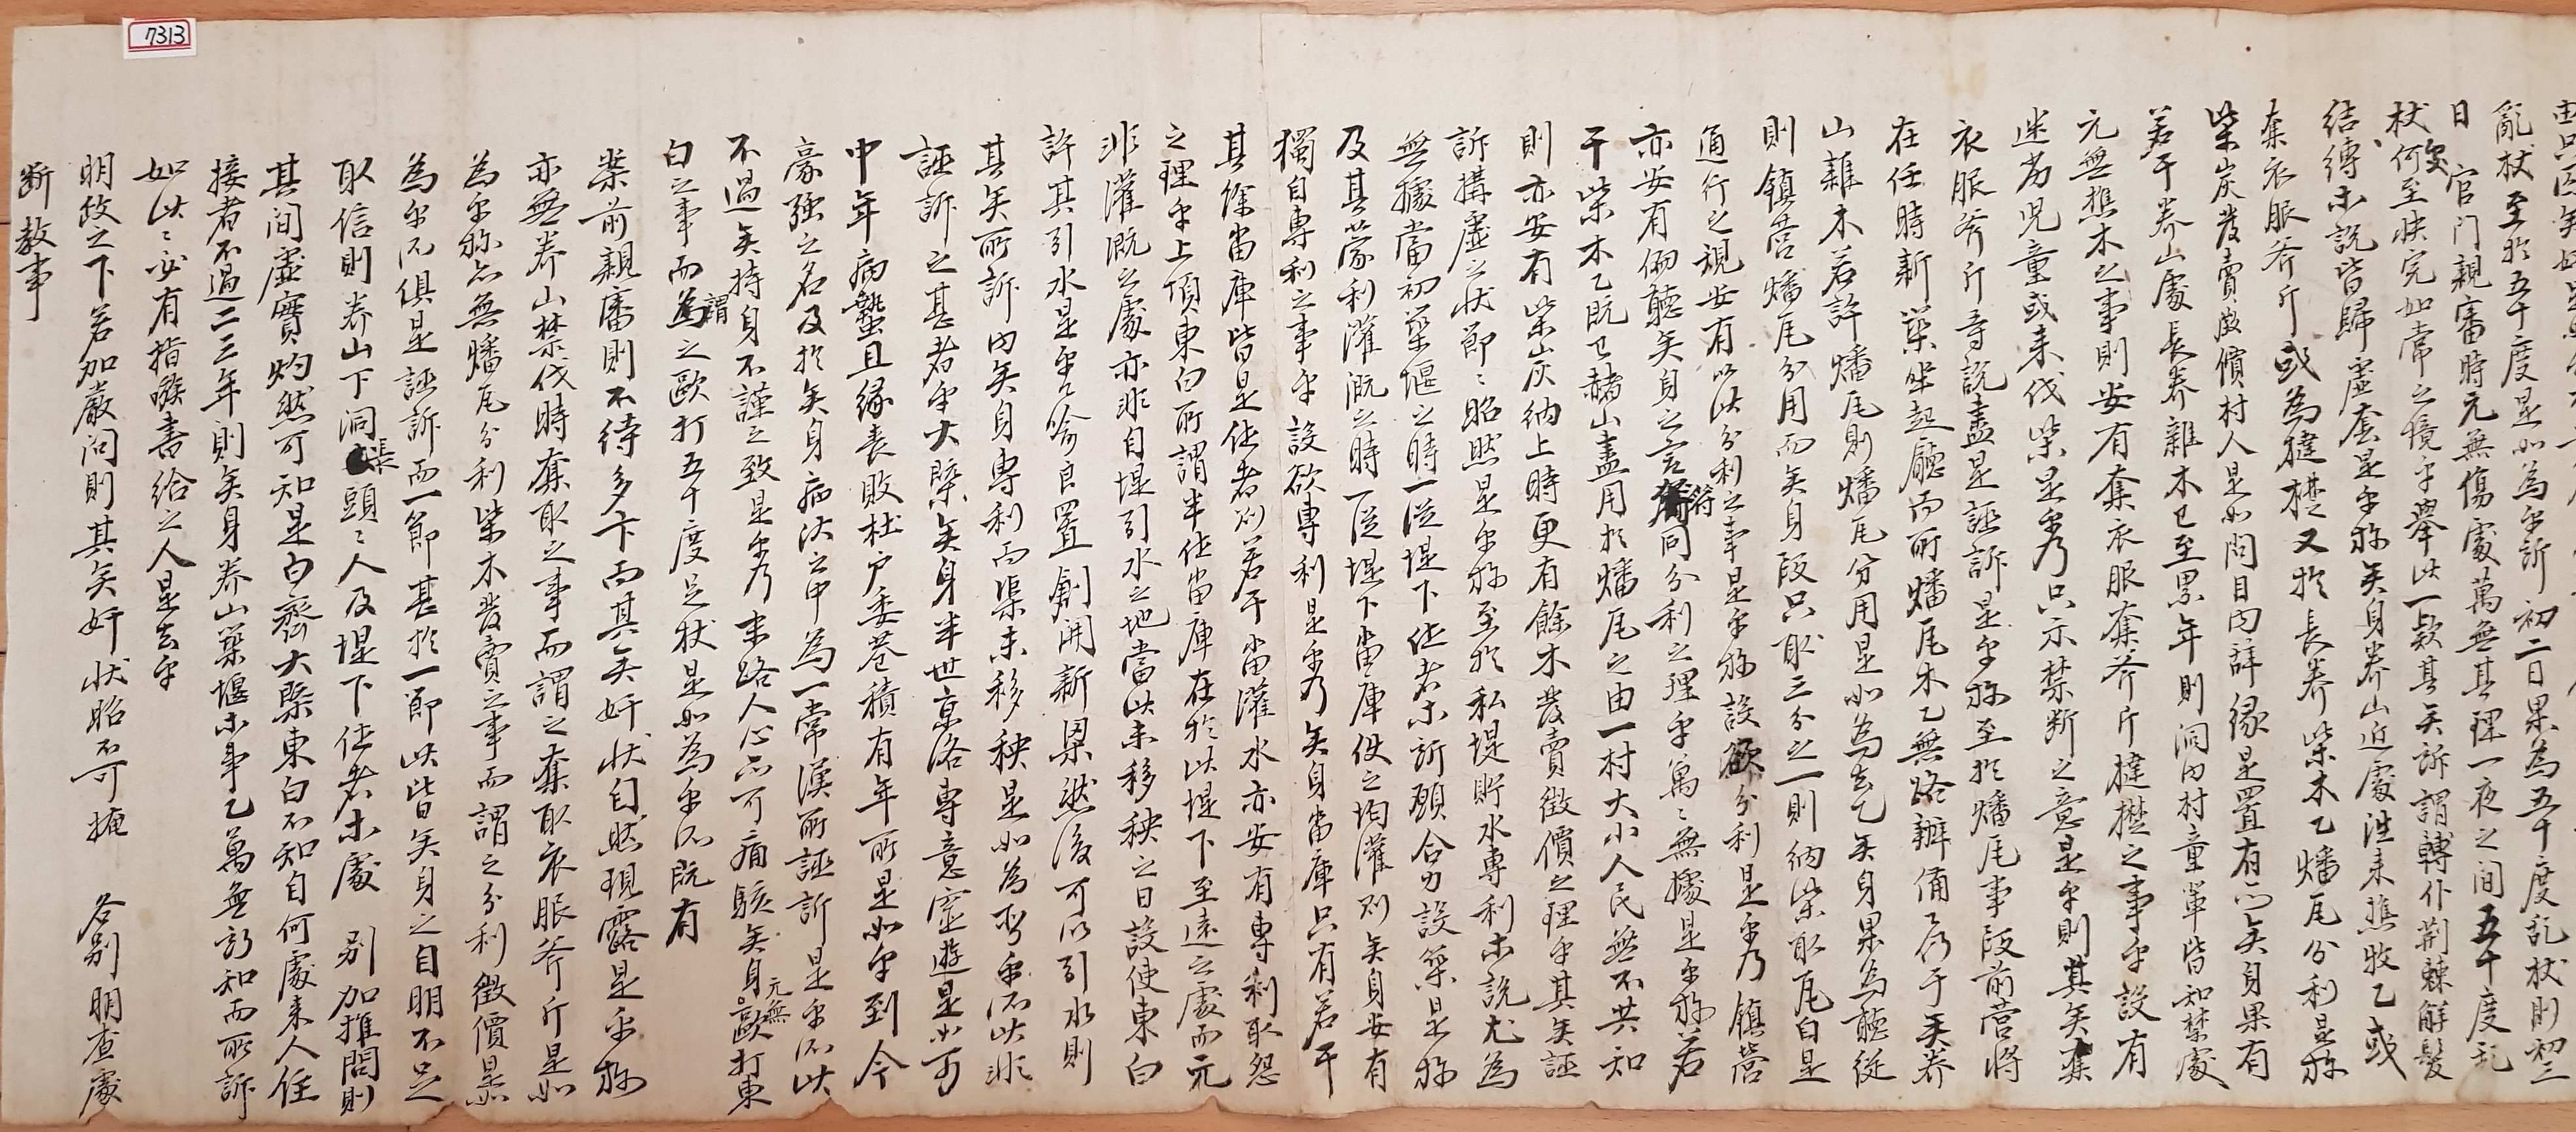 亂杖至於五十度是如爲乎所初二日果爲五十度乱杖則初三
日 官門親審時元無傷處萬無其理一夜之間五十度乱
杖何至快完如常之境乎擧此一款其矣訴謂轉仆荊棘解髮
結縛等說皆歸虛套是乎㫆矣身養山近處往来樵牧乙或
奪衣服斧斤或爲撻楚又於長養柴木乙燔瓦分利是㫆
柴炭發賣徵價村人是如問目內辞緣是置有亦矣身果有
若干養山處長養雜木已至累年則洞內村童軍皆知禁處
元無樵木之事則安有奪衣服奪斧斤撻楚之事乎設有
迷劣児童或来伐柴是乎乃只示禁断之意是乎則其矣奪
衣服斧斤等說盡是誣訴是乎㫆至於燔瓦事段前營將
在任時新築坐起廳而所燔瓦木乙無路辦備仍于矣養
山雜木若許燔瓦則燔瓦分用是如爲去乙矣身果爲聽從
則鎭營燔瓦分用而矣身段只取三分之一則納柴取瓦白是
通行之規安有以此分利之事是乎㫆設欲分利是乎乃鎭營
亦安有俯聽矣身之言將同分利之理乎萬〻無據是乎㫆若
干柴木乙旣已赭山盡用於燔瓦之由一村大小人民無不共知
則亦安有柴炭納上時更有餘木發賣徵價之理乎其矣誣
訴搆虛之狀節〻昭然是乎㫆至於私堤貯水專利等說尤爲
無據當初築堰之時一從堤下住者等訴願合力設築是㫆
及其蒙利灌漑之時一從堤下畓庫使之均灌則矣身安有
獨自專利之事乎設欲專利是乎乃矣身畓庫只有若干
其餘畓庫皆是他者則若干畓灌水亦安有專利取怨
之理乎上項東白所謂半作畓庫在於此堤下至遠之處而元
非灌漑之處亦非自堤引水之地當此未移秧之日設使東白
許其引水是乎乃喩良置創開新渠然後可以引水則
其矣所訴內矣身專利而渠未移秧是如爲臥乎所此非
誣訴之甚者乎大槩矣身半世京洛專意宦遊是如可
中年病蟄且緣喪敗杜户委巷積有年所是如乎到今
豪强之名及於矣身病汰之中爲一常漢所誣訴是乎所此
不過矣持身不謹之致是乎乃末路人心亦可痛駭矣身元無歐打東
白之事而謂之歐打五十度足杖是如爲乎所旣有
案前親審則不待多卞而其矣奸狀自然現露是乎㫆
亦無養山禁伐時奪取之事而謂之奪取衣服斧斤是如
爲乎㫆亦無燔瓦分利柴木發賣之事而謂之分利徵價是如
爲乎所俱是誣訴而一節甚於一節此皆矣身之自明不足
取信則養山下洞張頭〻人及堤下住者等處 別加推問則
其間虛實灼然可知是白齊大槩東白不知自何處来人住
接者不過二三年則矣身養山築堰等事乙萬無詗知而所訴
如此〻必有指嗾書給之人是去乎
明政之下若加嚴问則其矣奸狀昭不可掩 各別明査處
断教事
7313